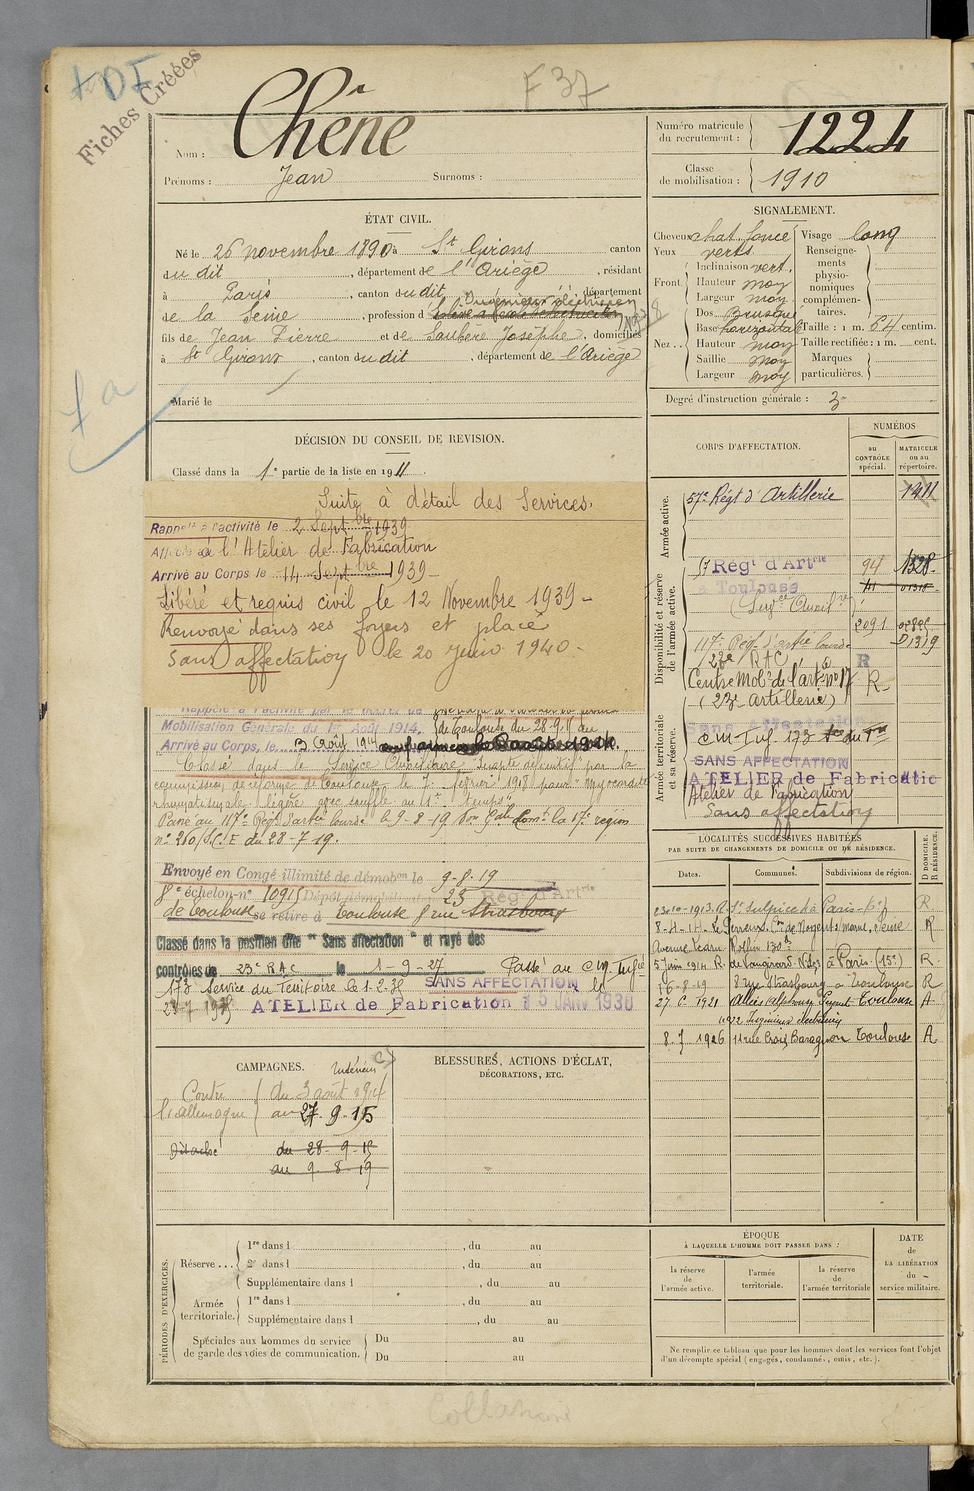 Fiches Créées
F 37
Nom : Chêne
Prénoms : Jean Surnoms :
Numéro matricule du recrutement : 1224
Classe de mobilisation : 1910
ÉTAT CIVIL.
Né le 26 novembre 1890 à St Girons canton
du dit, département de l'Ariège, résidant
à Paris, canton du dit, département
Ingénieur électricien
de la Seine, profession d
fils de Jean Pierre et de Saubère Josèphe, domiciliés
à St Girons, canton du dit, département de l'Ariège
Marié le
DÉCISION DU CONSEIL DE REVISION.
Classé dans la 1e partie de la liste en 1911.
Suite à détail des Services.
Rappelé à l'activité le 2 Septbre 1939
à l'Atelier de Fabrication
Arrivé au Corps le 14 Septbre 1939-
Libéré et requis civil le 12 Novembre 1939-
Renvoyé dans ses foyers et placé
Sans affectation le 20 Juin 1940-
Mobilisation Générale du 1er Août 1914.
de Toulouse du 28-9-15 au
Arrivé au Corps, le 3 Août 1914
Classé dans le Service Auxiliaire
commission de réforme de Toulouse 7 février 1918 pour
rhumatismale légère avec souffle au 1er temps"
Passé au 117e Régt d'artie lourde le 9-8-19 17e région
n° 260 du 28-7-19.
Envoyé en Congé illimité de démobon le 9-8-19
8e échelon n° 10915 Dépôt démobilisateur 23 Régt d'Artrie
de Toulouse se retire à Toulouse 8 rue Strasbourg
Classé dans la position dite "Sans affectation" et rayé des
contrôles du 23e RAC le 1-9-27 Passé au
173 Service du Territoire le 1-2-38 SANS AFFECTATION le
ATELIER de Fabrication 15 JANV 1938
CAMPAGNES.
Intérieur C
Contre l'allemagne du 3 août 1914
au 27-9-15
Détaché du 28-9-15
au 9-8-19
BLESSURES, ACTIONS D'ÉCLAT,
DÉCORATIONS, ETC.
PÉRIODES D'EXERCICES.
Réserve ...
1re dans l , du au
2e dans l , du au
Supplémentaire dans l , du au
Armée territoriale.
1re dans l , du au
Supplémentaire dans l , du au
Spéciales aux hommes du service de garde des voies de communication.
Du au
Du au
SIGNALEMENT.
Cheveux chat. foncé Visage long
Yeux verts
Front Inclinaison vert.
Hauteur moy
Largeur moy.
Nez Dos Busqué
Base horizontale
Hauteur moy
Saillie moy
Largeur moy
Renseignements physionomiques complémentaires.
Taille : 1 m. 64 centim.
Taille rectifiée : 1 m. cent.
Marques particulières.
Degré d'instruction générale : 3
CORPS D'AFFECTATION.
NUMÉROS
au CONTRÔLE spécial.
MATRICULE ou au répertoire.
Armée active.
57e Régt d'Artillerie 1411
Disponibilité et réserve de l'armée active.
57 Régt d'Artrie 94 1328
à Toulouse
(Service Auxilre)
2091
117e Régt d'artie lourde D1319
(23e RAC) R
Centre Mobre de l'artie n° 17 R
(23e Artillerie)
Armée territoriale et sa réserve.
Sans affectation
SANS AFFECTATION
ATELIER de Fabricatio
Atelier de Fabrication
Sans affectation
LOCALITÉS SUCCESSIVES HABITÉES
PAR SUITE DE CHANGEMENTS DE DOMICILE OU DE RÉSIDENCE.
Dates. Communes. Subdivisions de région. D DOMICILE. R RÉSIDENCE.
1913. R. St Sulpice à Paris-6e R
8-4-14 Perreux, Con de Nogent s/ marne, Seine R
Avenue Ledru Rollin 130
5 Juin 1914 R. de Vaugirard à Paris (15e) R
16-8-19 8 rue Strasbourg à Toulouse R
1921 Allées Alphonse Peyrat Toulouse A
1922 Ingénieur électricien
8. 7 1926 11 rue Croix Baragnon Toulouse A
ÉPOQUE
À LAQUELLE L'HOMME DOIT PASSER DANS :
la réserve de l'armée active.
l'armée territoriale.
la réserve de l'armée territoriale
DATE de LA LIBÉRATION du service militaire.
Ne remplir ce tableau que pour les hommes dont les services font l'objet
d'un décompte spécial (engagés, condamnés, omis, etc.).